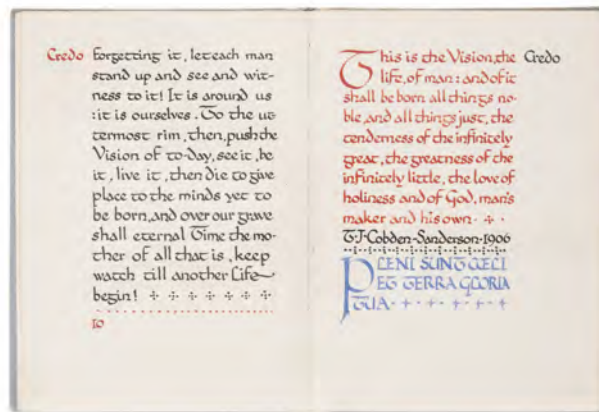 Credo
forgetting it, let each man
stand up and see and wit-
ness to it! It is around us
:it is ourselves. To the ut
termost rim, then, push the
Vision of to-day, see it, be
it, live it, then die to give
place to the minds yet to
be born, and over our grave
shall eternal Time the mo-
ther of all that is, keep
watch till another Life
begin!
10
This is the Vision, the
life, of man: and of it
shall be born all things no-
ble and all things just, the
tenderness of the infinitely
great, the greatness of the
infinitely little, the love of
holiness and of God, man's
maker and his own
Credo
T·J·Cobden-Sanderson·1906
PLENI SUNT CŒLI
ET TERRA GLORIA
TUA